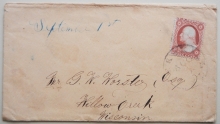 September 1st
Mr. G. W. Worster Esq
Willow Creek
Wisconsin